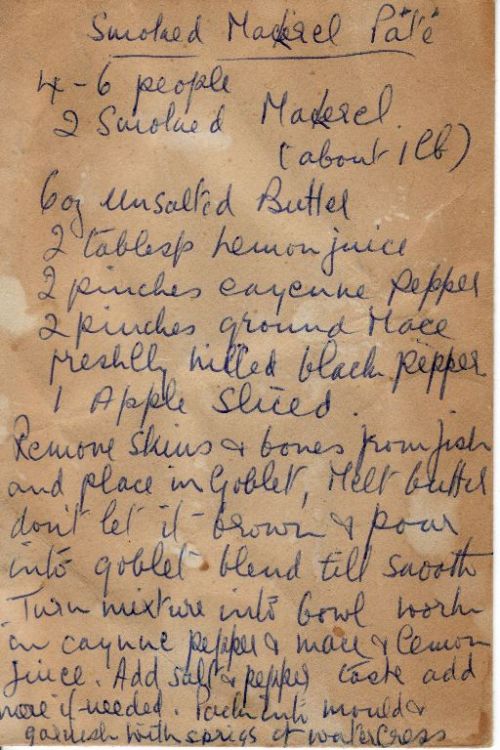 Smoked Mackrel Pâté
4-6 people
2 Smoked Mackerel
(about 1 lb)
6oz Unsalted Butter
2 tablesp Lemon juice
2 pinches cayenne pepper
2 pinches ground Mace
freshlly milled black pepper
1 Apple Sliced.
Remove skins & bones from fish
and place in Goblet, Melt butter
don't let it brown & pour
into goblet blend till smooth
Turn mixture into bowl work
in caynne pepper & mace & lemon
juice. Add salt & pepper taste add
more if needed. Pack into mould &
garnish with sprigs of watercress